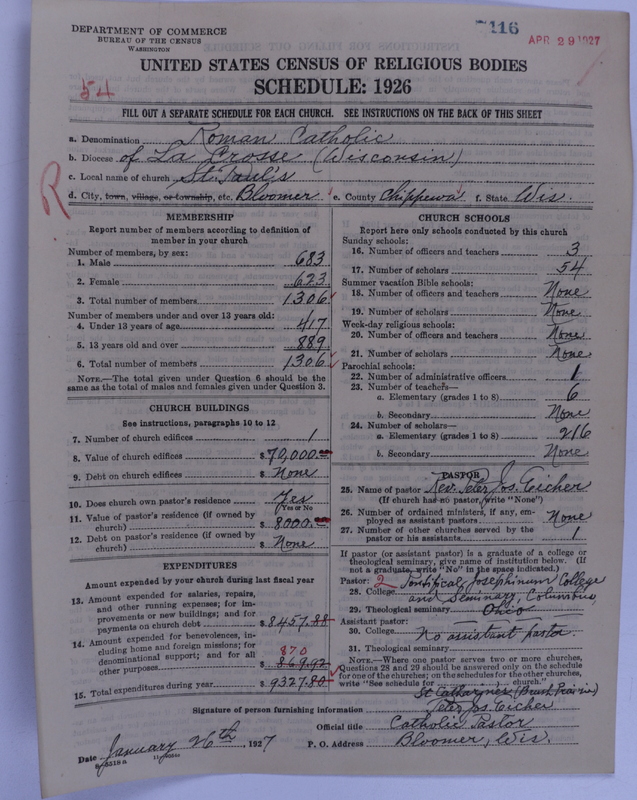 DEPARTMENT OF COMMERCE
BUREAU OF THE CENSUS
WASHINGTON
116
APR 29 1927
UNITED STATES CENSUS OF RELIGIOUS BODIES
SCHEDULE: 1926
54
FILL OUT A SEPARATE SCHEDULE FOR EACH CHURCH. SEE INSTRUCTIONS ON THE BACK OF THIS SHEET
a. Denomination Roman Catholic
b. Diocese of La Crosse (Wisconsin)
c. Local name of church St. Paul's
R
d. City, town, village, or township, etc. Bloomer e. County Chippewa f. State Wis.
MEMBERSHIP
Report number of members according to definition of member in your church
Number of members, by sex:
1. Male 683
2. Female 623
3. Total number of members 1306
Number of members under and over 13 years old:
4. Under 13 years of age 417
5. 13 years old and over 889
6. Total number of members 1306
NOTE.—The total given under Question 6 should be
same as the total of males and females given under Question 3.
CHURCH BUILDINGS
See instructions, paragraphs 10 to 12
7. Number of church edifices 1
8. Value of church edifices $70,000.00
9. Debt on church edifices $ None
10. Does church own pastor's residence Yes
Yes or No
11. Value of pastor's residence (if owned by
church) $8000.00
12. Debt on pastor's residence (if owned by
church) $ None
EXPENDITURES
Amount expended by your church during last fiscal year
13. Amount expended for salaries, repairs,
and other running expenses; for im-
provements or new buildings; and for
payments on church debt $8457.88
14. Amount expended for benevolences, in-
cluding home and foreign missions; for
denominational support; and for all
other purposes
870
$869.92
15. Total expenditures during year $9327.80
CHURCH SCHOOLS
Report here only schools conducted by this church
Sunday schools:
16. Number of officers and teachers 3
17. Number of scholars 54
Summer vacation Bible schools:
18. Number of officers and teachers None
19. Number of scholars None
Week-day religious schools:
20. Number of officers and teachers None
21. Number of scholars None
Parochial schools:
22. Number of administrative officers 1
23. Number of teachers—
a. Elementary (grades 1 to 8) 6
b. Secondary None
24. Number of scholars—
a. Elementary (grades 1 to 8) 216
b. Secondary None
PASTOR
25. Name of pastor Rev. Peter Jos. Eicher
(If church has no pastor, write "None")
26. Number of ordained ministers, if any, em-
ployed as assistant pastors None
27. Number of other churches served by the
pastor or his assistants 1
If pastor (or assistant pastor) is a graduate of a college or
theological seminary, give name of institution below. (If
not a graduate, write "No" in the space indicated.)
Pastor: 2 Pontifical Josephinum College
28. College and Seminary, Columbus,
29. Theological seminary Ohio
Assistant pastor:
30. College No assistant pastor.
31. Theological seminary
NOTE.—Where one pastor serves two or more churches,
Questions 28 and 29 should be answered only on the schedule
for one of the churches; on the schedules for the other churches,
write "See schedule for church."
St Catharynes (Brush Prairie)
Signature of person furnishing information Peter Jos. Eicher
Official title Catholic Pastor
Date January 26th, 1927 P. O. Address Bloomer, Wis.